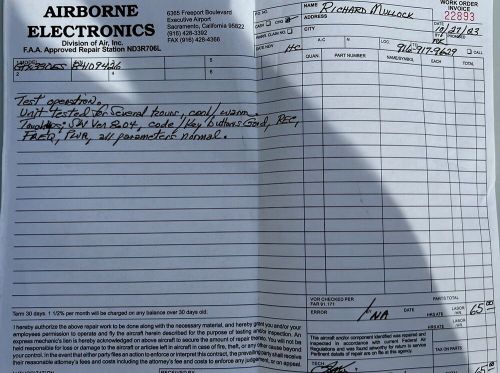 AIRBORNE
ELECTRONICS
Division of Air, Inc.
F.A.A. Approved Repair Station ND3R706L
6365 Freeport Boulevard
Executive Airport
Sacramento, California 95822
(916) 428-3392
FAX (916) 428-4366
NAME RICHARD MULLOCK
ADDRESS
CITY
WORK ORDER
INVOICE
22893
DATE
10/27/03
PROMISED
CASH
CALL
DATE NOW
916-917-9629
QUAN. PART NUMBER NAME/SYMBOL EACH TOTAL
MODEL
84109426
Test operation.
Unit tested for several hours, cool/warm
Ver 8.04, code/key buttons Good, REC,
FREQ, PWR, all parameters normal.
Term 30 days. 1 1/2% per month will be charged on any balance over 30 days old.
I hereby authorize the above repair work to be done along with the necessary material, and hereby grant you and/or your
employees permission to operate and fly the aircraft herein described for the purpose of testing and/or inspection. An
express mechanic's lien is hereby acknowledged on above aircraft to secure the amount of repair thereto. You will not be
held responsible for loss or damage to the aircraft or articles left in aircraft in case of fire, theft, or any other cause beyond
your control. In the event that either party files an action to enforce or interpret this contract, the prevailing party shall receive
their reasonable attorney's fees and costs including the attorney's fees and costs to enforce any judgement, or on appeal.
AUTHORIZATION
VOR CHECKED PER
FAR 91.171
ERROR NA DATE
PARTS TOTAL
HRS ATE LABOR 65.00
HRS ATE LABOR
TAX ON PARTS
TOTAL 65.00
This aircraft and/or component identified was repaired and
inspected in accordance with current Federal Air
Regulations and was found airworthy for return to service
Pertinent details of repair are on file at this agency.
TECH